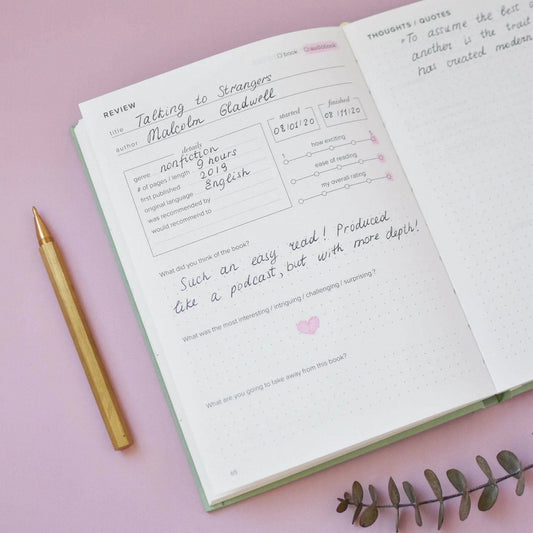 book audiobook
REVIEW
title Talking to Strangers
author Malcolm Gladwell
details
genre nonfiction
# of pages / length 9 hours
first published 2019
original language English
was recommended by
would recommend to
started finished
08/01/20 08/11/20
how exciting
ease of reading
my overall rating
What did you think of the book?
Such an easy read! Produced
like a podcast, but with more depth!
What was the most interesting / intriguing / challenging / surprising?
What are you going to take away from this book?
THOUGHTS / QUOTES
"To assume the best a
another is the trait
has created modern